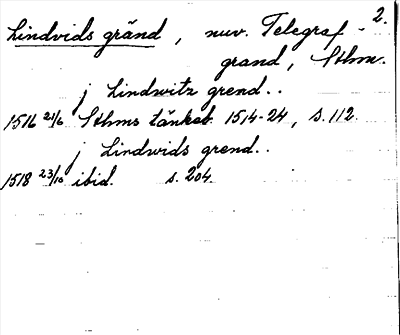 2.
Lindvids gränd, nuv. Telegraf-
gränd, Sthm.
j Lindwitz grend..
1516 21/6 Sthms tänkeb. 1514-24, s. 112.
j Lindwids grend..
1518 23/10 ibid. s. 204.